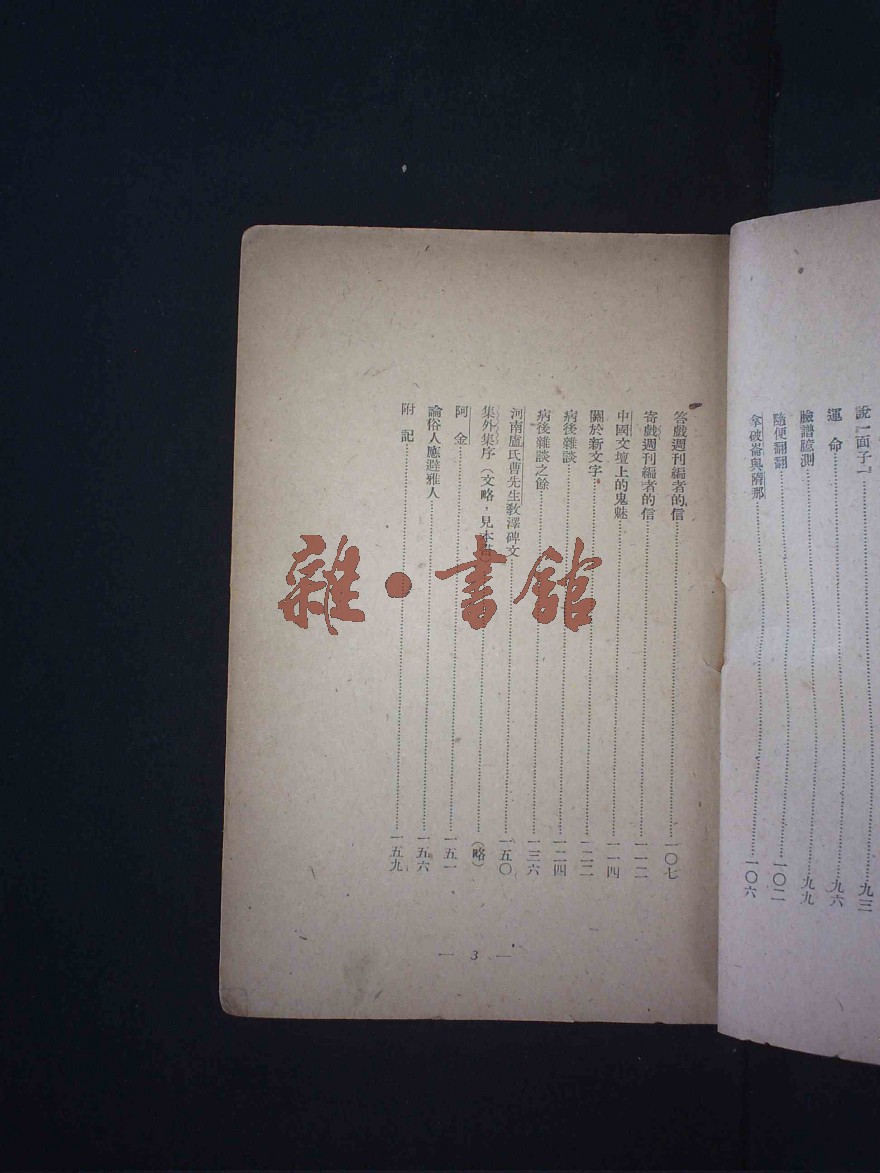 說「面子」……九三
運命……九六
臉譜臆測……九九
隨便翻翻……一〇二
拿破崙與隋那……一〇六
答戲週刊編者的信……一〇七
寄戲週刊編者的信……一一二
中國文壇上的鬼魅……一一四
關於新文字……一二二
病後雜談……一二四
病後雜談之餘……一三六
河南盧氏曹先生敎澤碑文……一五〇
集外集序（文略，見本……（略）
阿金……一五一
論俗人應避雅人……一五六
附記……一五九
— 3 —
雜·書館